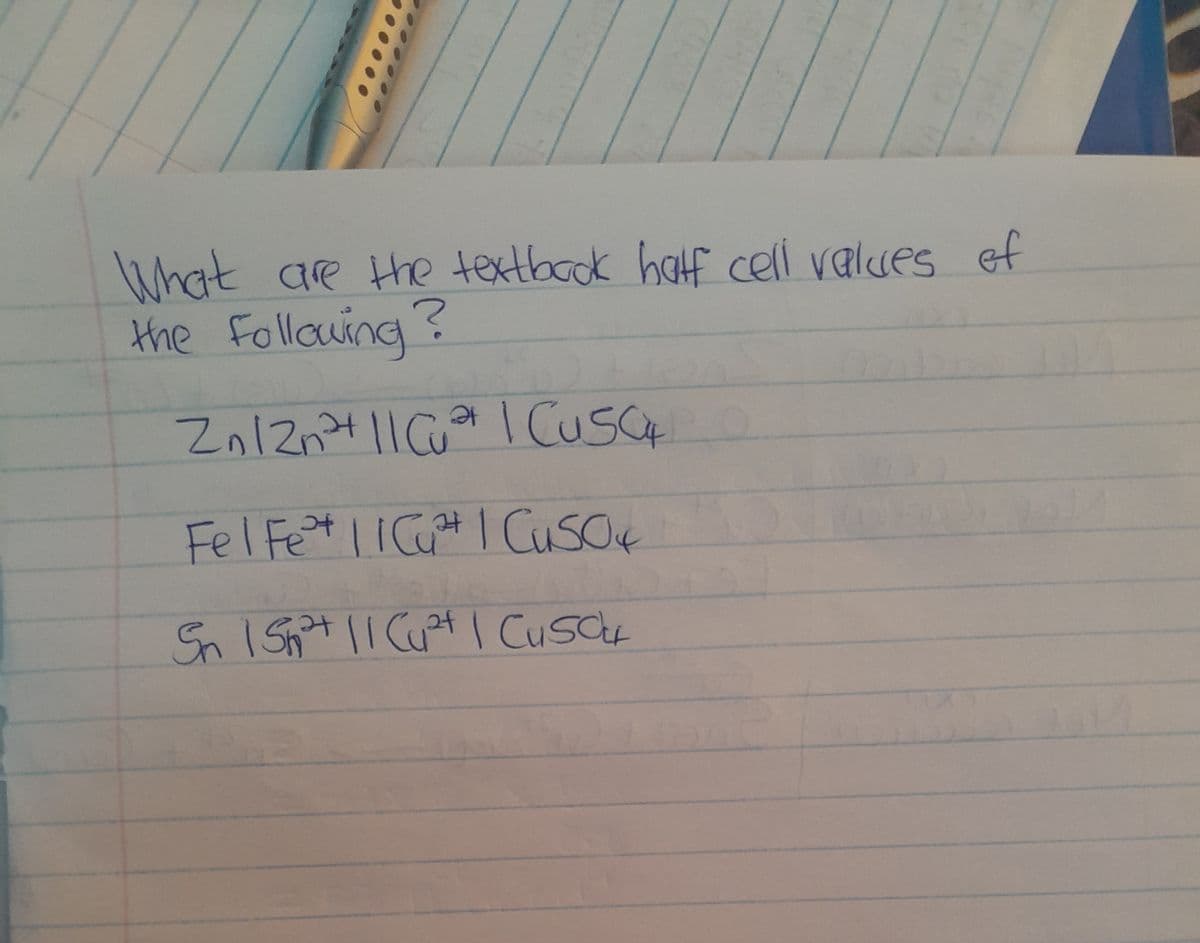 What are the textbook half cell values of
the following?
Zn|Zn²⁺||Cu²⁺|CuSO₄
Fe|Fe²⁺||Cu²⁺|CuSO₄
Sn|Sn²⁺||Cu²⁺|CuSO₄